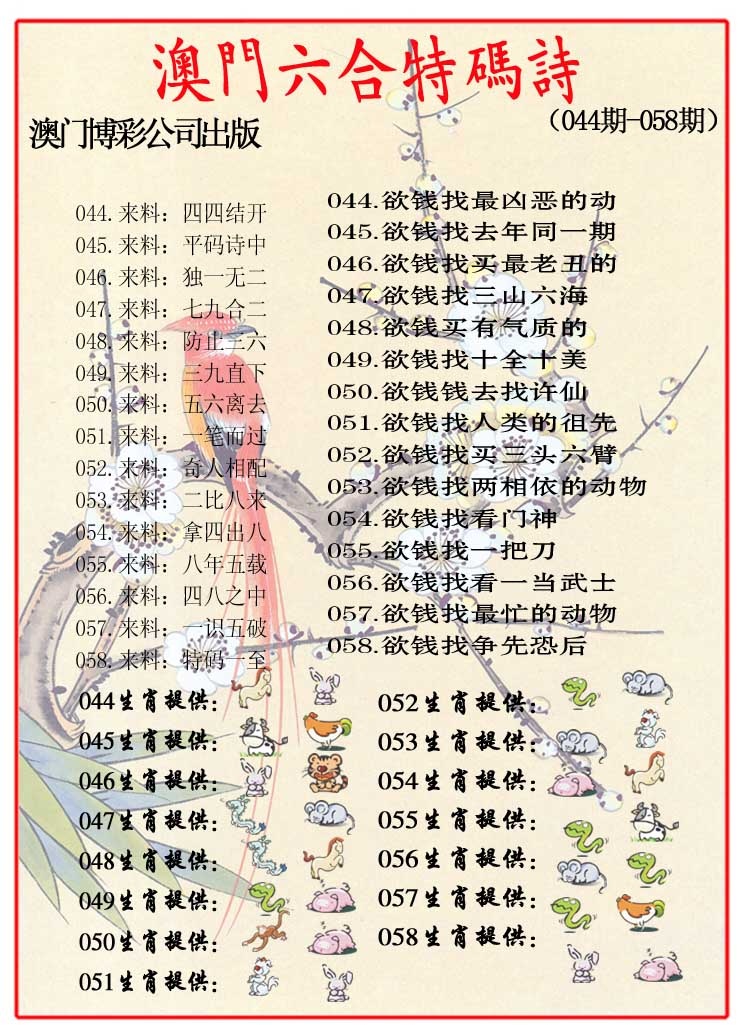 澳門六合特碼詩
澳门博彩公司出版
（044期-058期）
044.来料：四四结开
045.来料：平码诗中
046.来料：独一无二
047.来料：七九合二
048.来料：防止三六
049.来料：三九直下
050.来料：五六离去
051.来料：一笔而过
052.来料：奇人相配
053.来料：二比八来
054.来料：拿四出八
055.来料：八年五载
056.来料：四八之中
057.来料：一识五破
058.来料：特码一至
044.欲钱找最凶恶的动
045.欲钱找去年同一期
046.欲钱找买最老丑的
047.欲钱找三山六海
048.欲钱买有气质的
049.欲钱找十全十美
050.欲钱钱去找许仙
051.欲钱找人类的祖先
052.欲钱找买三头六臂
053.欲钱找两相依的动物
054.欲钱找看门神
055.欲钱找一把刀
056.欲钱找看一当武士
057.欲钱找最忙的动物
058.欲钱找争先恐后
044生肖提供：
045生肖提供：
046生肖提供：
047生肖提供：
048生肖提供：
049生肖提供：
050生肖提供：
051生肖提供：
052生肖提供：
053生肖提供：
054生肖提供：
055生肖提供：
056生肖提供：
057生肖提供：
058生肖提供：